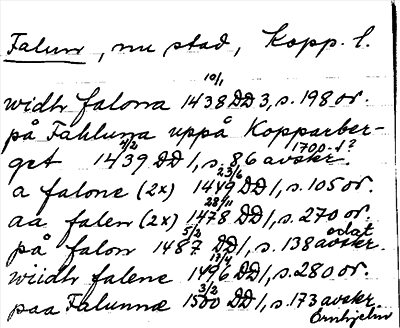 Falun, nu stad, Kopp. l.
widh falona 10/1 1438 DD 3, s. 198 or.
på Fahluna uppå Kopparber-
get 2/2 1439 DD 1, s. 86 avskr. 1700-t?
a falone (2x) 23/6 1449 DD 1, s. 105 or.
aa falen (2x) 28/11 1478 DD 1, s. 270 or.
på falon 5/2 1487 DD 1, s. 138 avskr. odat
wiidh falene 17/4 1496 DD 1, s. 280 or.
paa Falunnæ 3/2 1500 DD 1, s. 173 avskr.
Örnhjelm